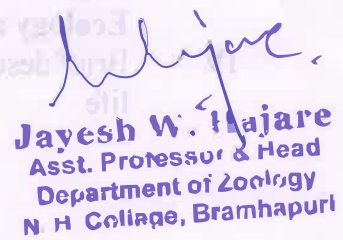 Jayesh W. Hajare
Asst. Professor & Head
Department of Zoology
N. H College, Bramhapuri